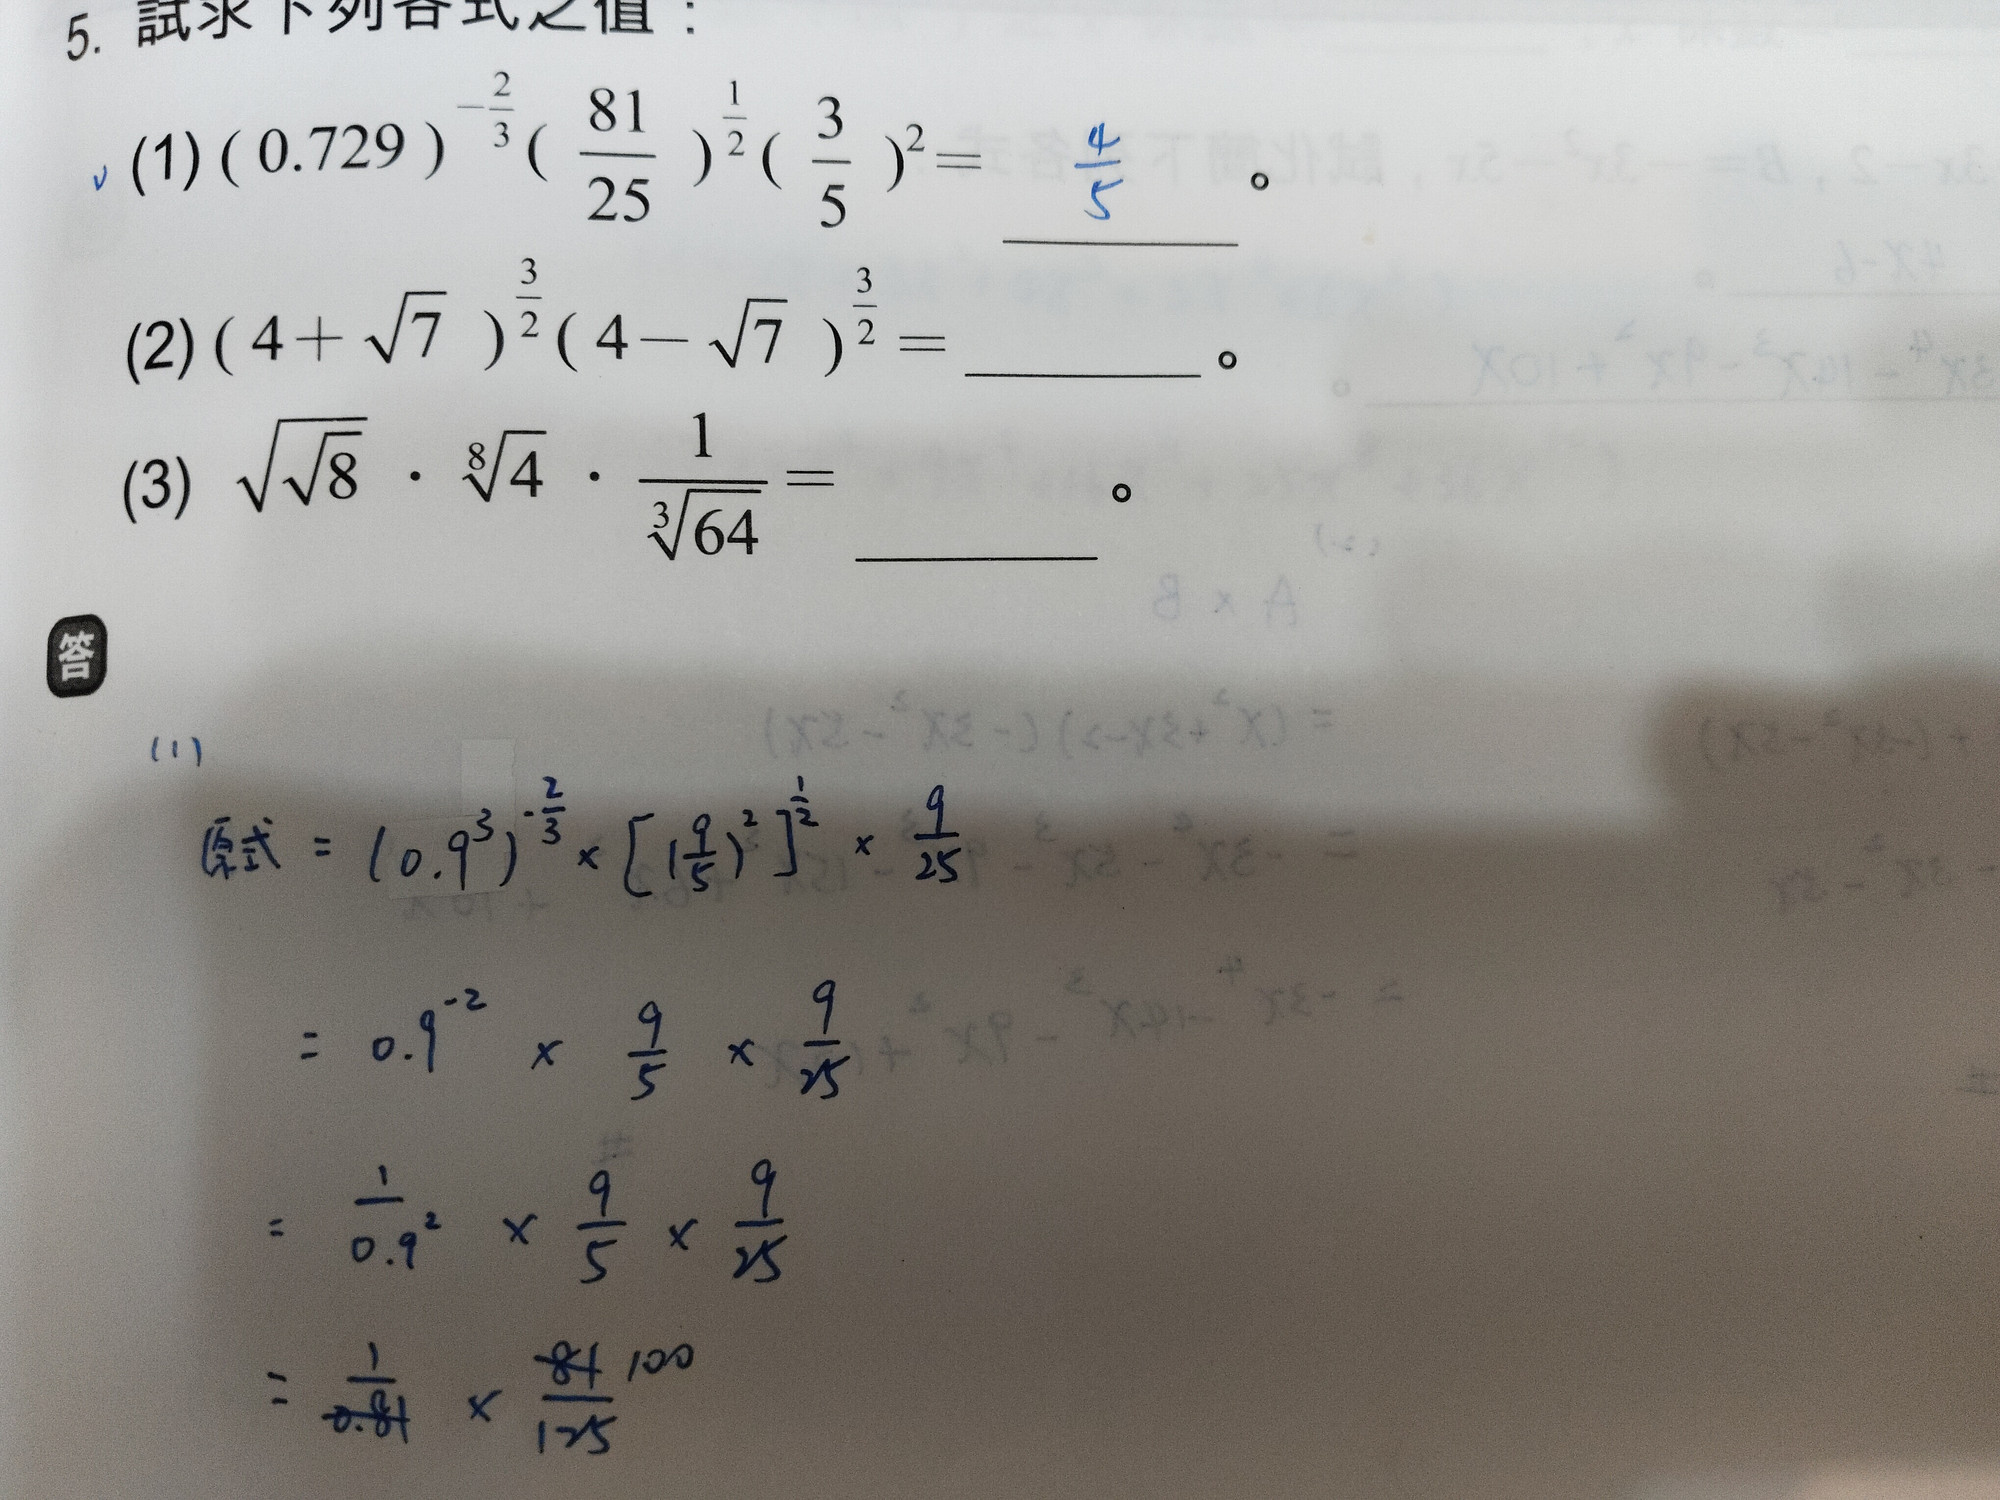 5. 試求下列各式之值：
✓ (1) ( 0.729 )^{-2/3} ( 81/25 )^{1/2} ( 3/5 )^2 = 4/5 。
(2) ( 4+√7 )^{3/2} ( 4-√7 )^{3/2} = ______ 。
(3) √√8 · ⁸√4 · 1/³√64 = ______ 。
答
(1)
原式 = (0.9^3)^{-2/3} × [(9/5)^2]^{1/2} × 9/25
= 0.9^{-2} × 9/5 × 9/25
= 1/0.9^2 × 9/5 × 9/25
= 1/0.81 × 81/125 100